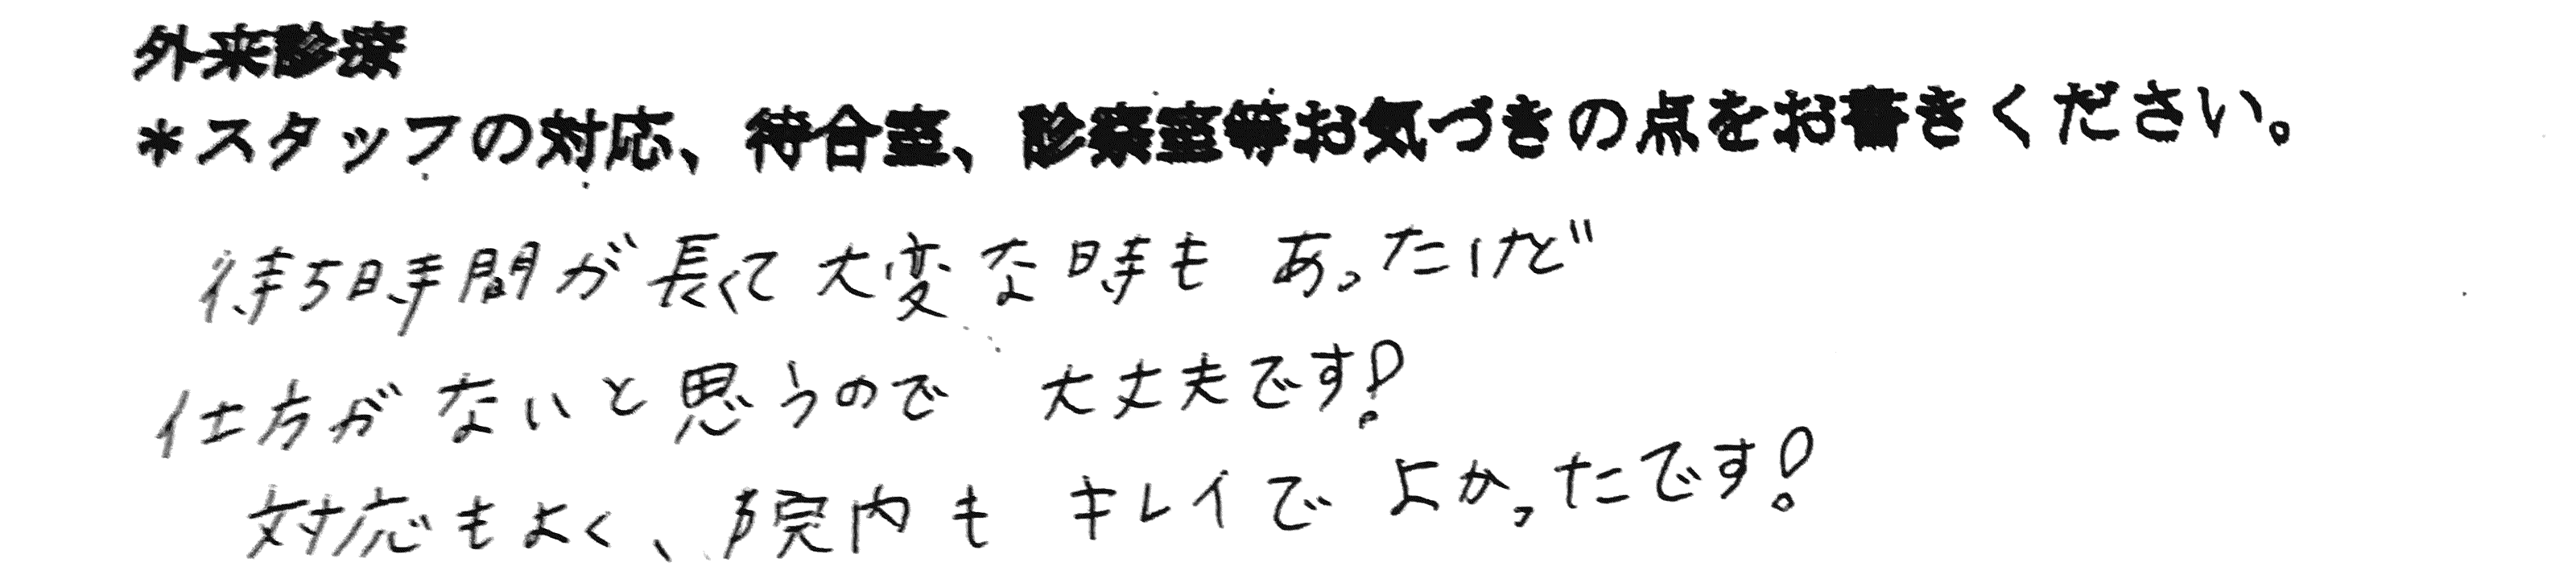 外来診療
*スタッフの対応、待合室、診察室等お気づきの点をお書きください。
待ち時間が長くて大変な時もあったけど
仕方がないと思うので 大丈夫です!
対応もよく、院内も キレイで よかったです!